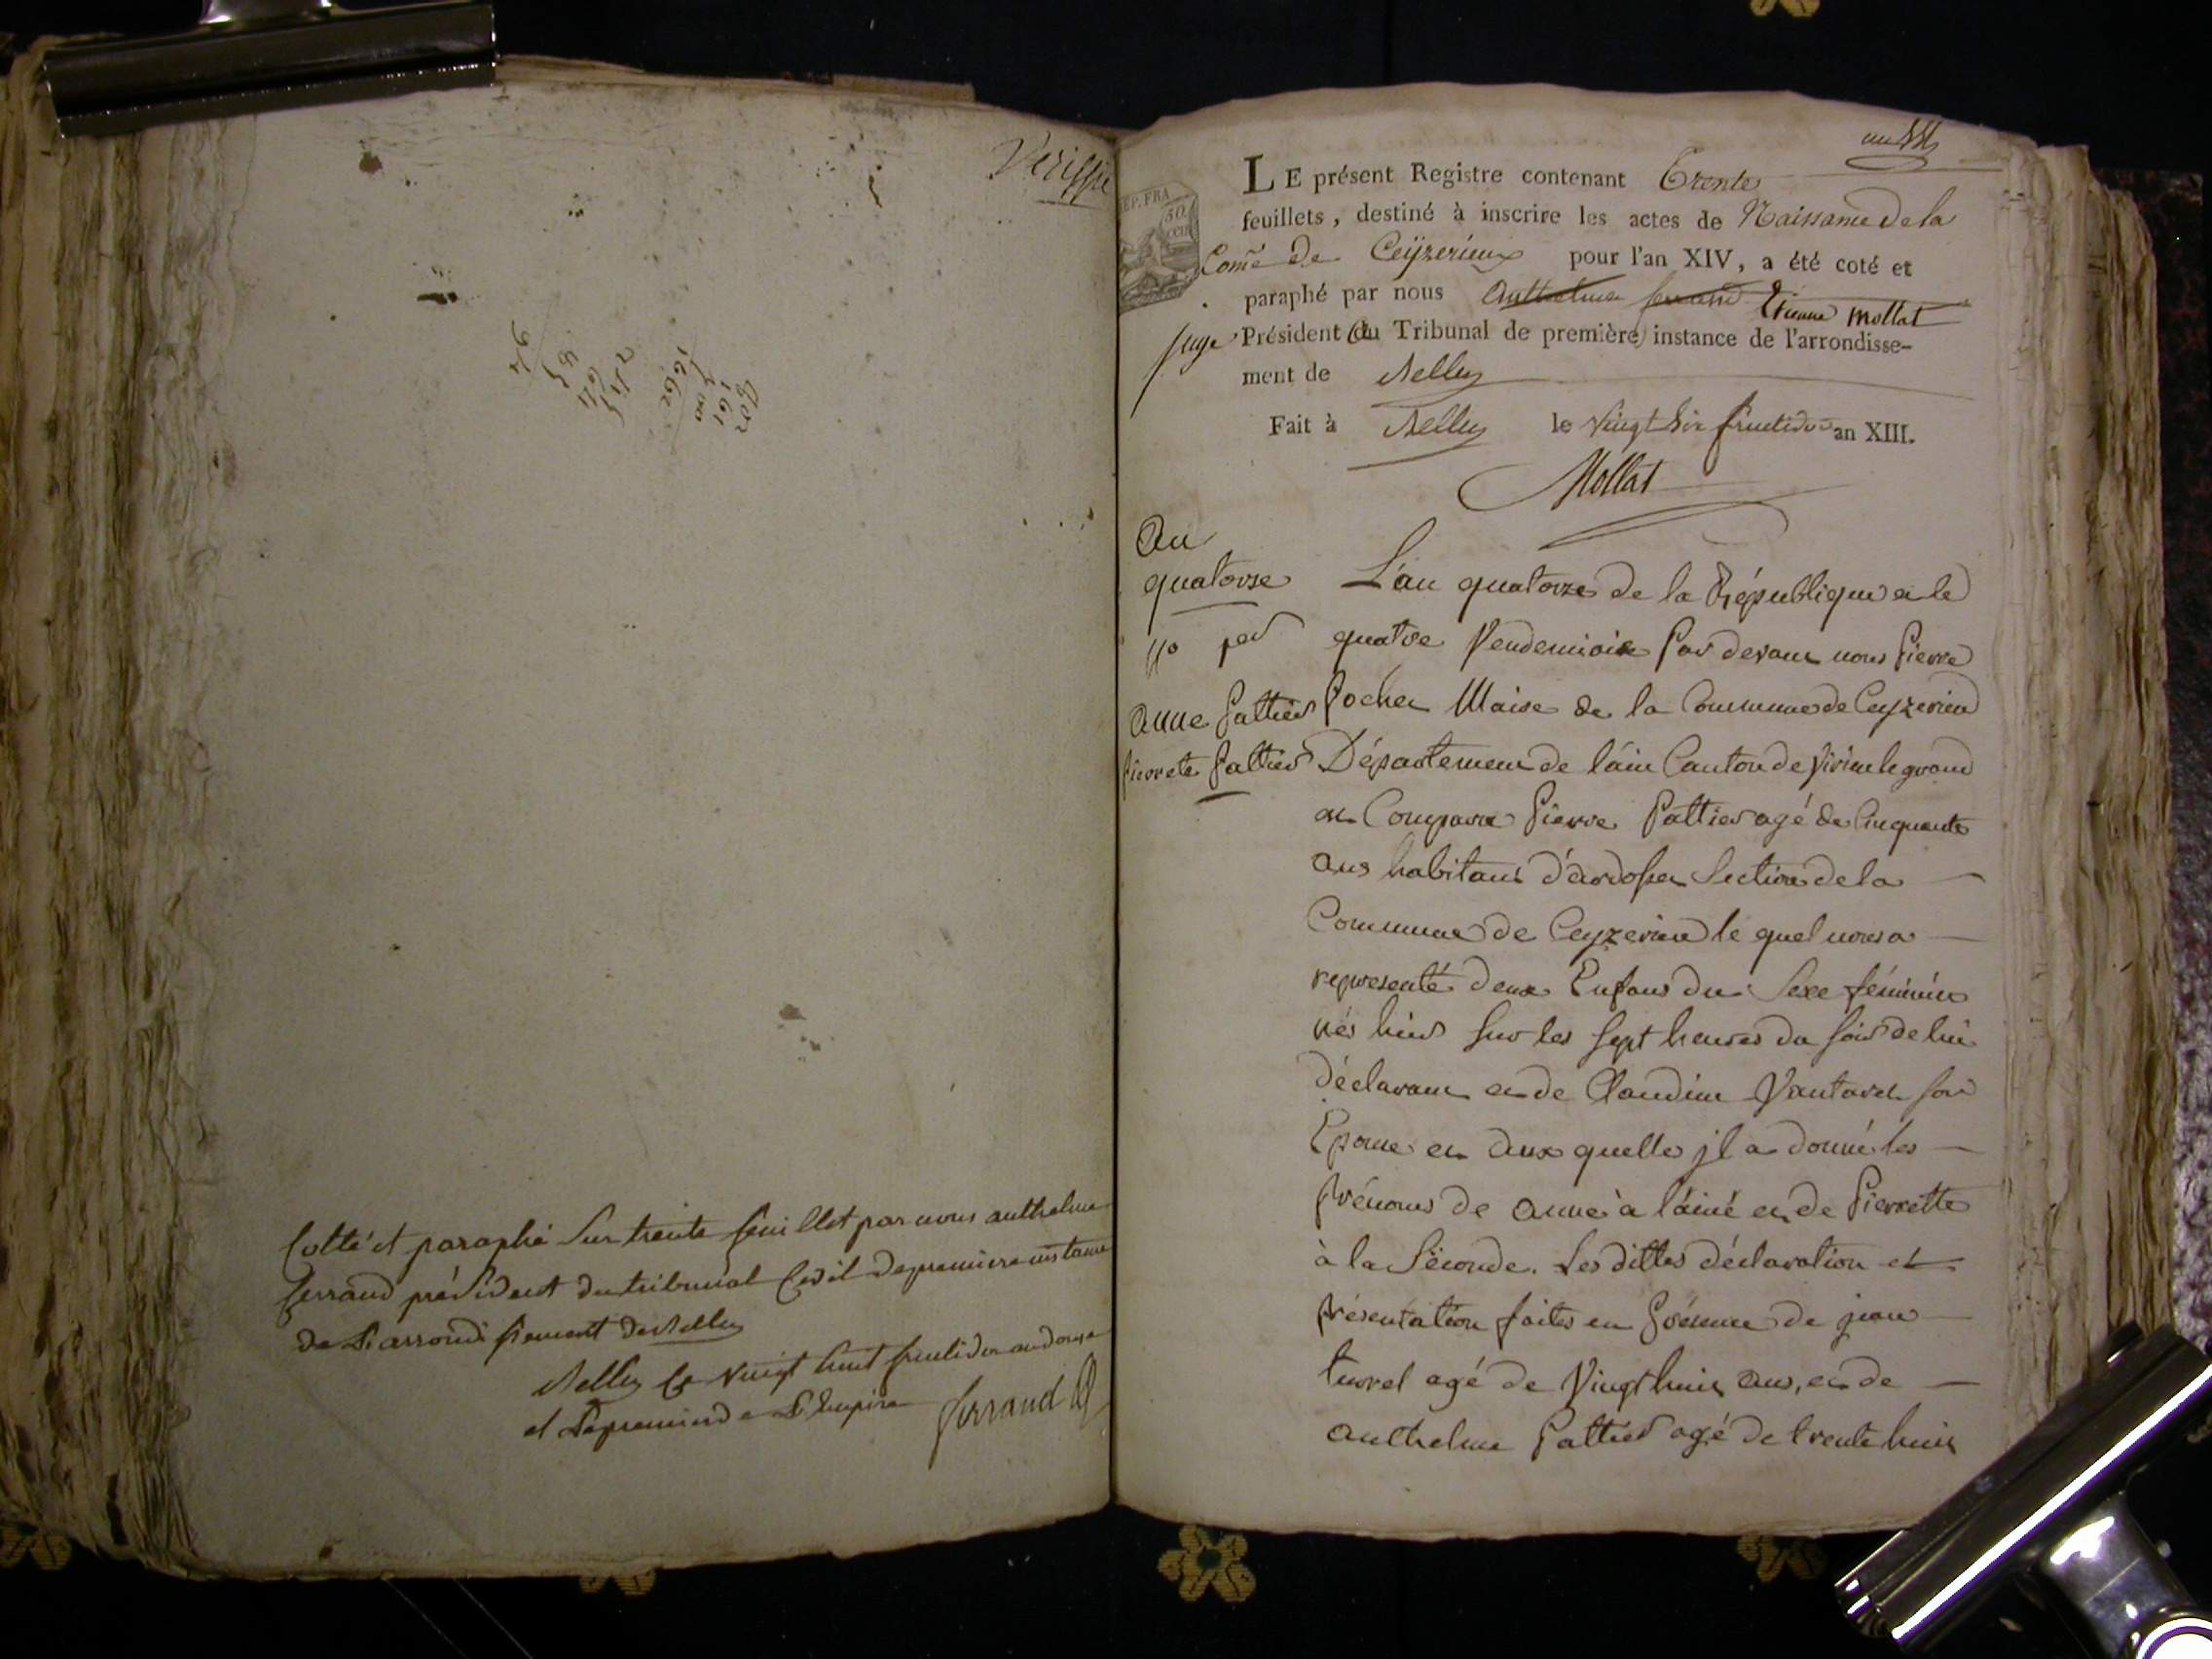 Veriffié
Cotté et paraphé Sur trente feuillet par nous anthelme
ferrand président du tribunal Civil de premiere instance
de L'arrondissement de Belley
Belley le vingt huit fructidor an douze
et Le premier de L'Empire ferrand
an 14
LE présent Registre contenant trente
feuillets, destiné à inscrire les actes de Naissance de la
Come de Ceyzerieux pour l'an XIV, a été coté et
paraphé par nous Anthelme ferrand Etienne Mollat
juge Président du Tribunal de première instance de l'arrondisse-
ment de Belley
Fait à Belley le Vingt Six fructidor an XIII.
Mollat
REP. FRA
50.
CCII
An
quatorse
No per
Anne Pattier
Pierrete Pattier
L'an quatorze de la République et le
quatre Vendemiaire Par devant nous Pierre
Pochet Maire de la Commune de Ceyzerieu
Département de l'ain Canton de Virieu le grand
est Comparu Pierre Pattier agé de Cinquante
ans habitant d'ardosset Section de la
Commune de Ceyzerieu le quel nous a
representé deux Enfans du Sexe féminin
nés hier sur les sept heures du soir de lui
déclarant et de Claudine Vantaret son
Epouse et aux quelle jl a donné les
prénoms de Anne à l'ainé et de Pierrette
à la Séconde. Les dittes déclaration et
présentation faites en Présence de jean
turrel agé de Vingt huit ans, et de
Anthelme Pattier agé de trente huit